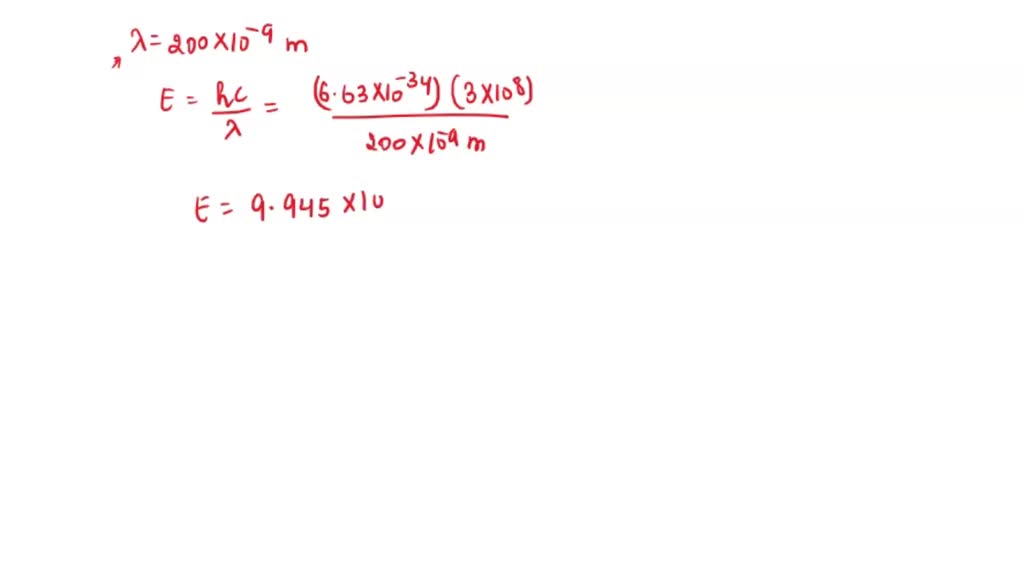 λ = 200 × 10⁻⁹ m
E = hc/λ = (6.63 × 10⁻³⁴) (3 × 10⁸) / 200 × 10⁻⁹ m
E = 9.945 × 10